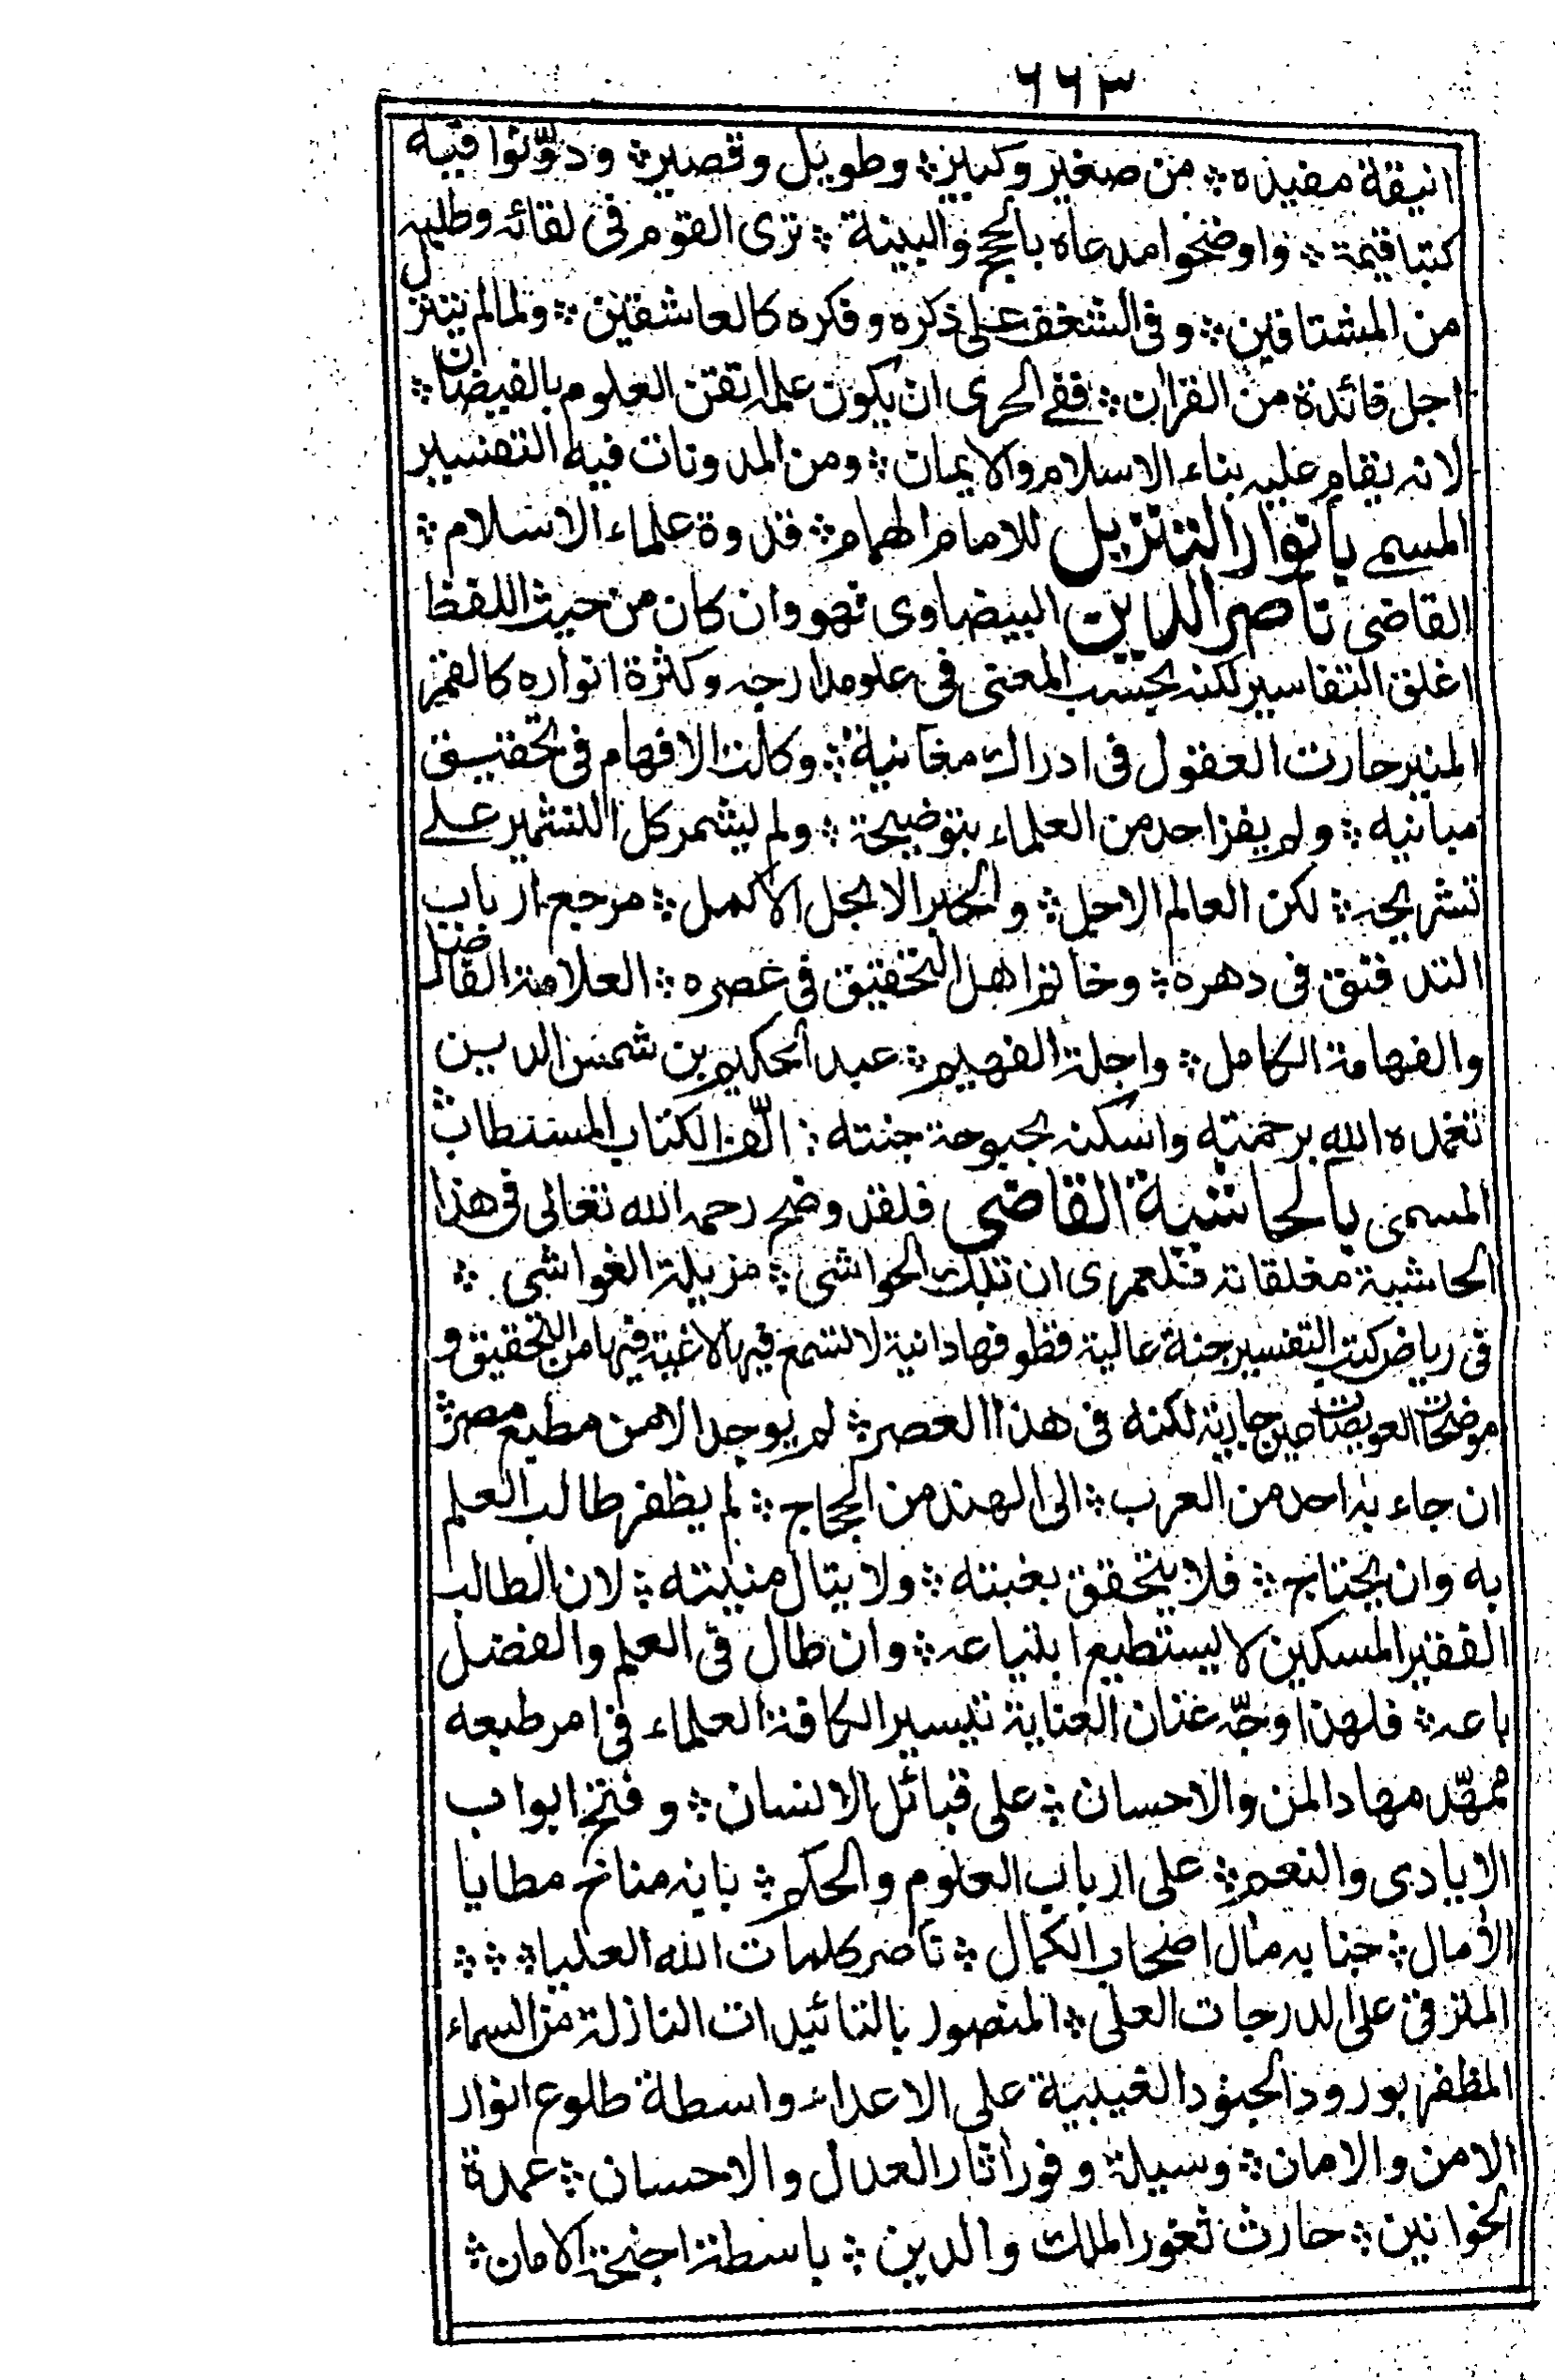 ٦٦٣
انيقة مفيده ؞ من صغير وكبير ؞ وطويل وقصير ؞ ودوّنوا فيه
كتبا قيمة ؞ واوضحوا مدعاه بالحجج والبينة ؞ ترى القوم فى لقائه وطلبه
من المشتاقين ؞ وفى الشغف على ذكره وفكره كالعاشقين ؞ ولما لم ينزل
اجل فائدة من القران ؞ ففے الحرى ان يكون علمه اتقن العلوم بالفيضان ؞
لانه يقام عليه بناء الاسلام والايمان ؞ ومن المدونات فيه التفسير
المسمے بانوار التنزيل للامام الهمام ؞ قدوة علماء الاسلام ؞
القاضى ناصر الدين البيضاوى فهو وان كان من حيث اللفظ
اغلق التفاسير لكنه بحسب المعنى فى علو مدارجه وكثرة انواره كالقمر
المنير حارت العقول فى ادراك معانية ؞ وكالت الافهام فى تحقيق
مبانيه ؞ ولم يفز احد من العلماء بتوضيحة ؞ ولم يشمر كل التشمير علے
تشريحه ؞ لكن العالم الاجل ؞ والحبر الابجل الاكمل ؞ مرجع ارباب
التدقيق فى دهره ؞ وخاتم اهل التحقيق فى عصره ؞ العلامة الفاضل
والفهامة الكامل ؞ واجلة الفهيم ؞ عبد الحكيم بن شمس الدين
تغمده الله برحمته واسكنه بحبوحة جنته ؞ الّف الكتاب المستطاب ؞
المسمى بالحاشية القاضى فلقد وضح رحمه الله تعالى فى هذا
الحاشية مغلقاته فلعمرى ان تلك الحواشى ؞ مزيلة الغواشى ؞
فى رياض كتب التفسير جنة عالية قطوفها دانية لا تسمع فيها لاغية فيها من التحقيق و
موضحات العويصات عين جارية لكنه فى هذا العصر ؞ لم يوجد الا من مطبع مصر ؞
ان جاء به احد من العرب ؞ الى الهند من الحجاج ؞ لم يظفر طالب العلم
به وان يحتاج ؞ فلا يتحقق بغيته ؞ ولا ينال منيته ؞ لان الطالب
الفقير المسكين لا يستطيع ابتياعه ؞ وان طال فى العلم والفضل
باعه ؞ فلهذا وجّه عنان العناية تيسيرا لكافة العلماء فى امر طبعه
ممهّد مهاد المن والاحسان ؞ على قبائل الانسان ؞ وفتح ابواب
الايادى والنعم ؞ على ارباب العلوم والحكم ؞ بابه مناخ مطايا
الأمال ؞ جنابه مال اصحاب الكمال ؞ ناصر كلمات الله العليا ؞ ؞ ؞
المترقى على الدرجات العلى ؞ المنصور بالتائيدات النازلة من السماء
المظفر بورود الجنود الغيبية على الاعداء واسطة طلوع انوار
الامن والامان ؞ وسيلة وفور اثار العدل والاحسان ؞ عمدة
الخوانين ؞ حارث ثغور الملك والدين ؞ باسطة اجنحة الامان ؞